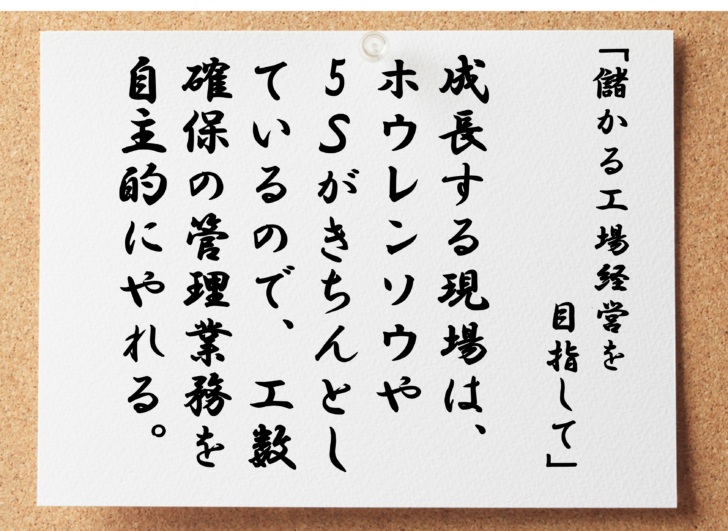 「儲かる工場経営を
目指して」
成長する現場は、
ホウレンソウや
５Ｓがきちんとし
ているので、工数
確保の管理業務を
自主的にやれる。